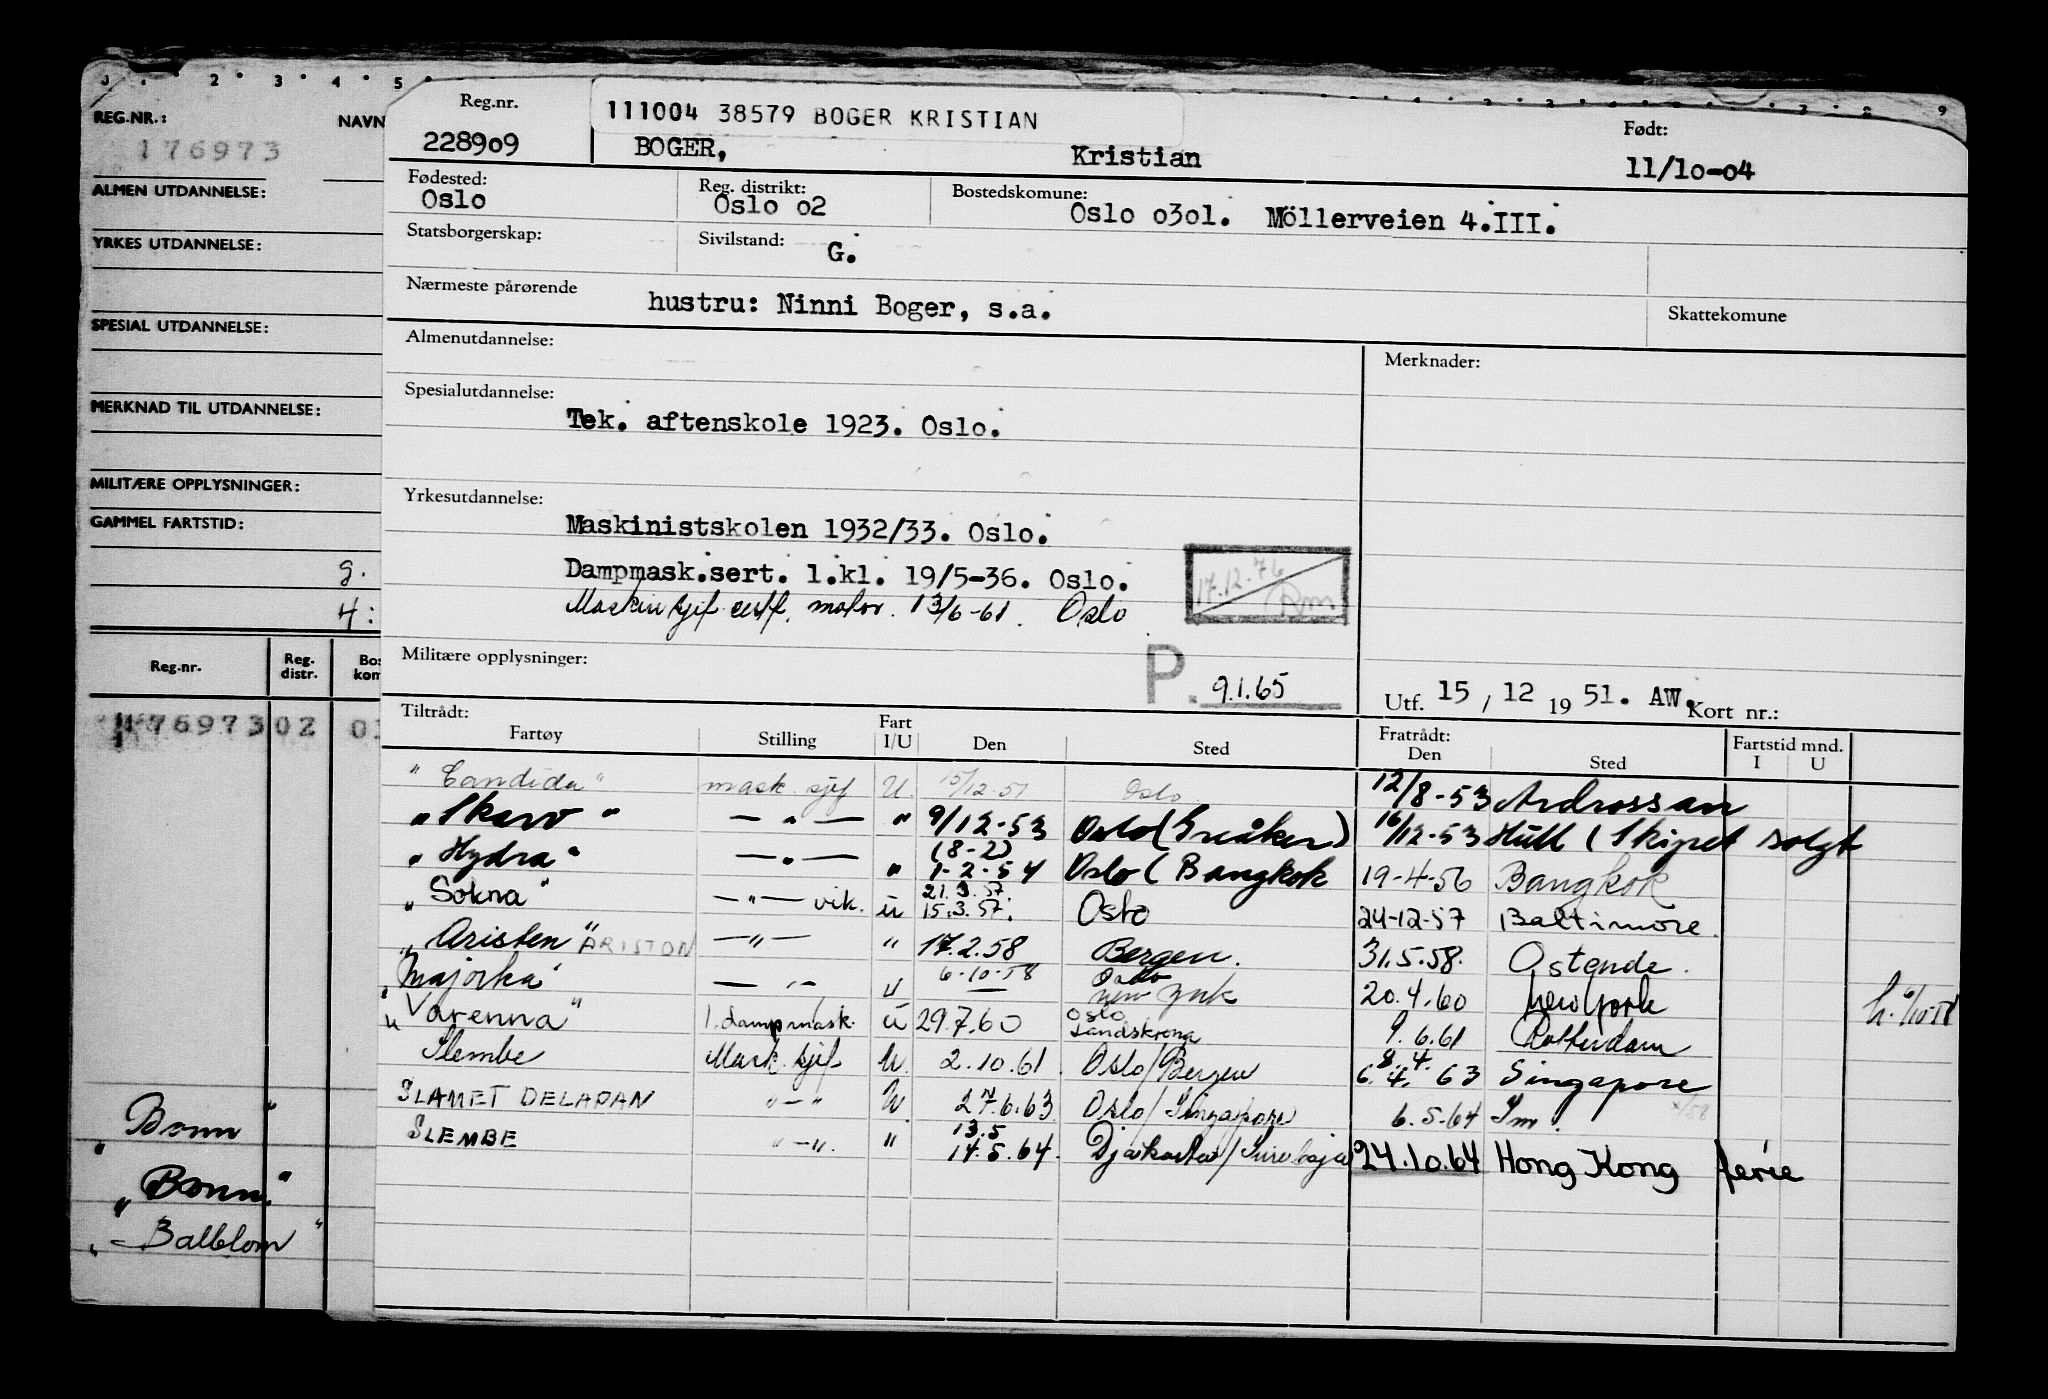 0 . 2 . 3 . 4 . 5
REG.NR.: NAVN
176973
ALMEN UTDANNELSE:
YRKES UTDANNELSE:
SPESIAL UTDANNELSE:
MERKNAD TIL UTDANNELSE:
MILITÆRE OPPLYSNINGER:
GAMMEL FARTSTID:
g.
4:
Reg.nr. Reg. distr. Bos kom
176973 02 03
Bonn "
" Bonn "
" Balblom "
111004 38579 BOGER KRISTIAN
Reg.nr. Født:
228909 BOGER, Kristian 11/10-04
Fødested: Reg. distrikt: Bostedskomune:
Oslo Oslo 02 Oslo 0301. Möllerveien 4.III.
Statsborgerskap: Sivilstand: G.
Nærmeste pårørende hustru: Ninni Boger, s.a. Skattekomune
Almenutdannelse: Merknader:
Spesialutdannelse:
Tek. aftenskole 1923. Oslo.
Yrkesutdannelse:
Maskinistskolen 1932/33. Oslo.
Dampmask.sert. 1.kl. 19/5-36. Oslo.
Maskinsjef certf. motor. 13/6-61. Oslo
17.12.76
Militære opplysninger: P. 9.1.65
Utf. 15 / 12 19 51. AW. Kort nr.:
Tiltrådt: Fratrådt: Fartstid mnd.
Fartøy Stilling Fart I/U Den Sted Den Sted I U
"Candida" mask. sjef U. 15/12-51 Oslo 12/8-53 Ardrossan
"Skaro" — " — " 9/12-53 Oslo (Greåker) 16/12-53 Hull (Skipet solgt
"Hydra" — " — " (8-2) 1-2-54 Oslo (Bangkok 19-4-56 Bangkok
"Sokna" — " — vik. u 21.3.57. 15.3.57. Oslo 24-12-57 Baltimore.
"Aristen" ARISTON — " — " 17.2.58 Bergen. 31.5.58. Ostende.
"Majorka" — " — u 6-10-58 Oslo New York 20.4.60 New York
"Varenna" 1. damp mask. u 29.7.60 Oslo Landskrona 9.6.61 Rotterdam
Slembe Mask. sjef U. 2.10.61 Oslo/Bergen 8.4. 6.4.63 Singapore
SLAMET DELAPAN " — " U. 27.6.63 Oslo/Singapore 6.5.64 Sm.
SLEMBE " — " " 13.5 14.5.64. Djakarta/Surabaja 24.10.64 Hong Kong ferie